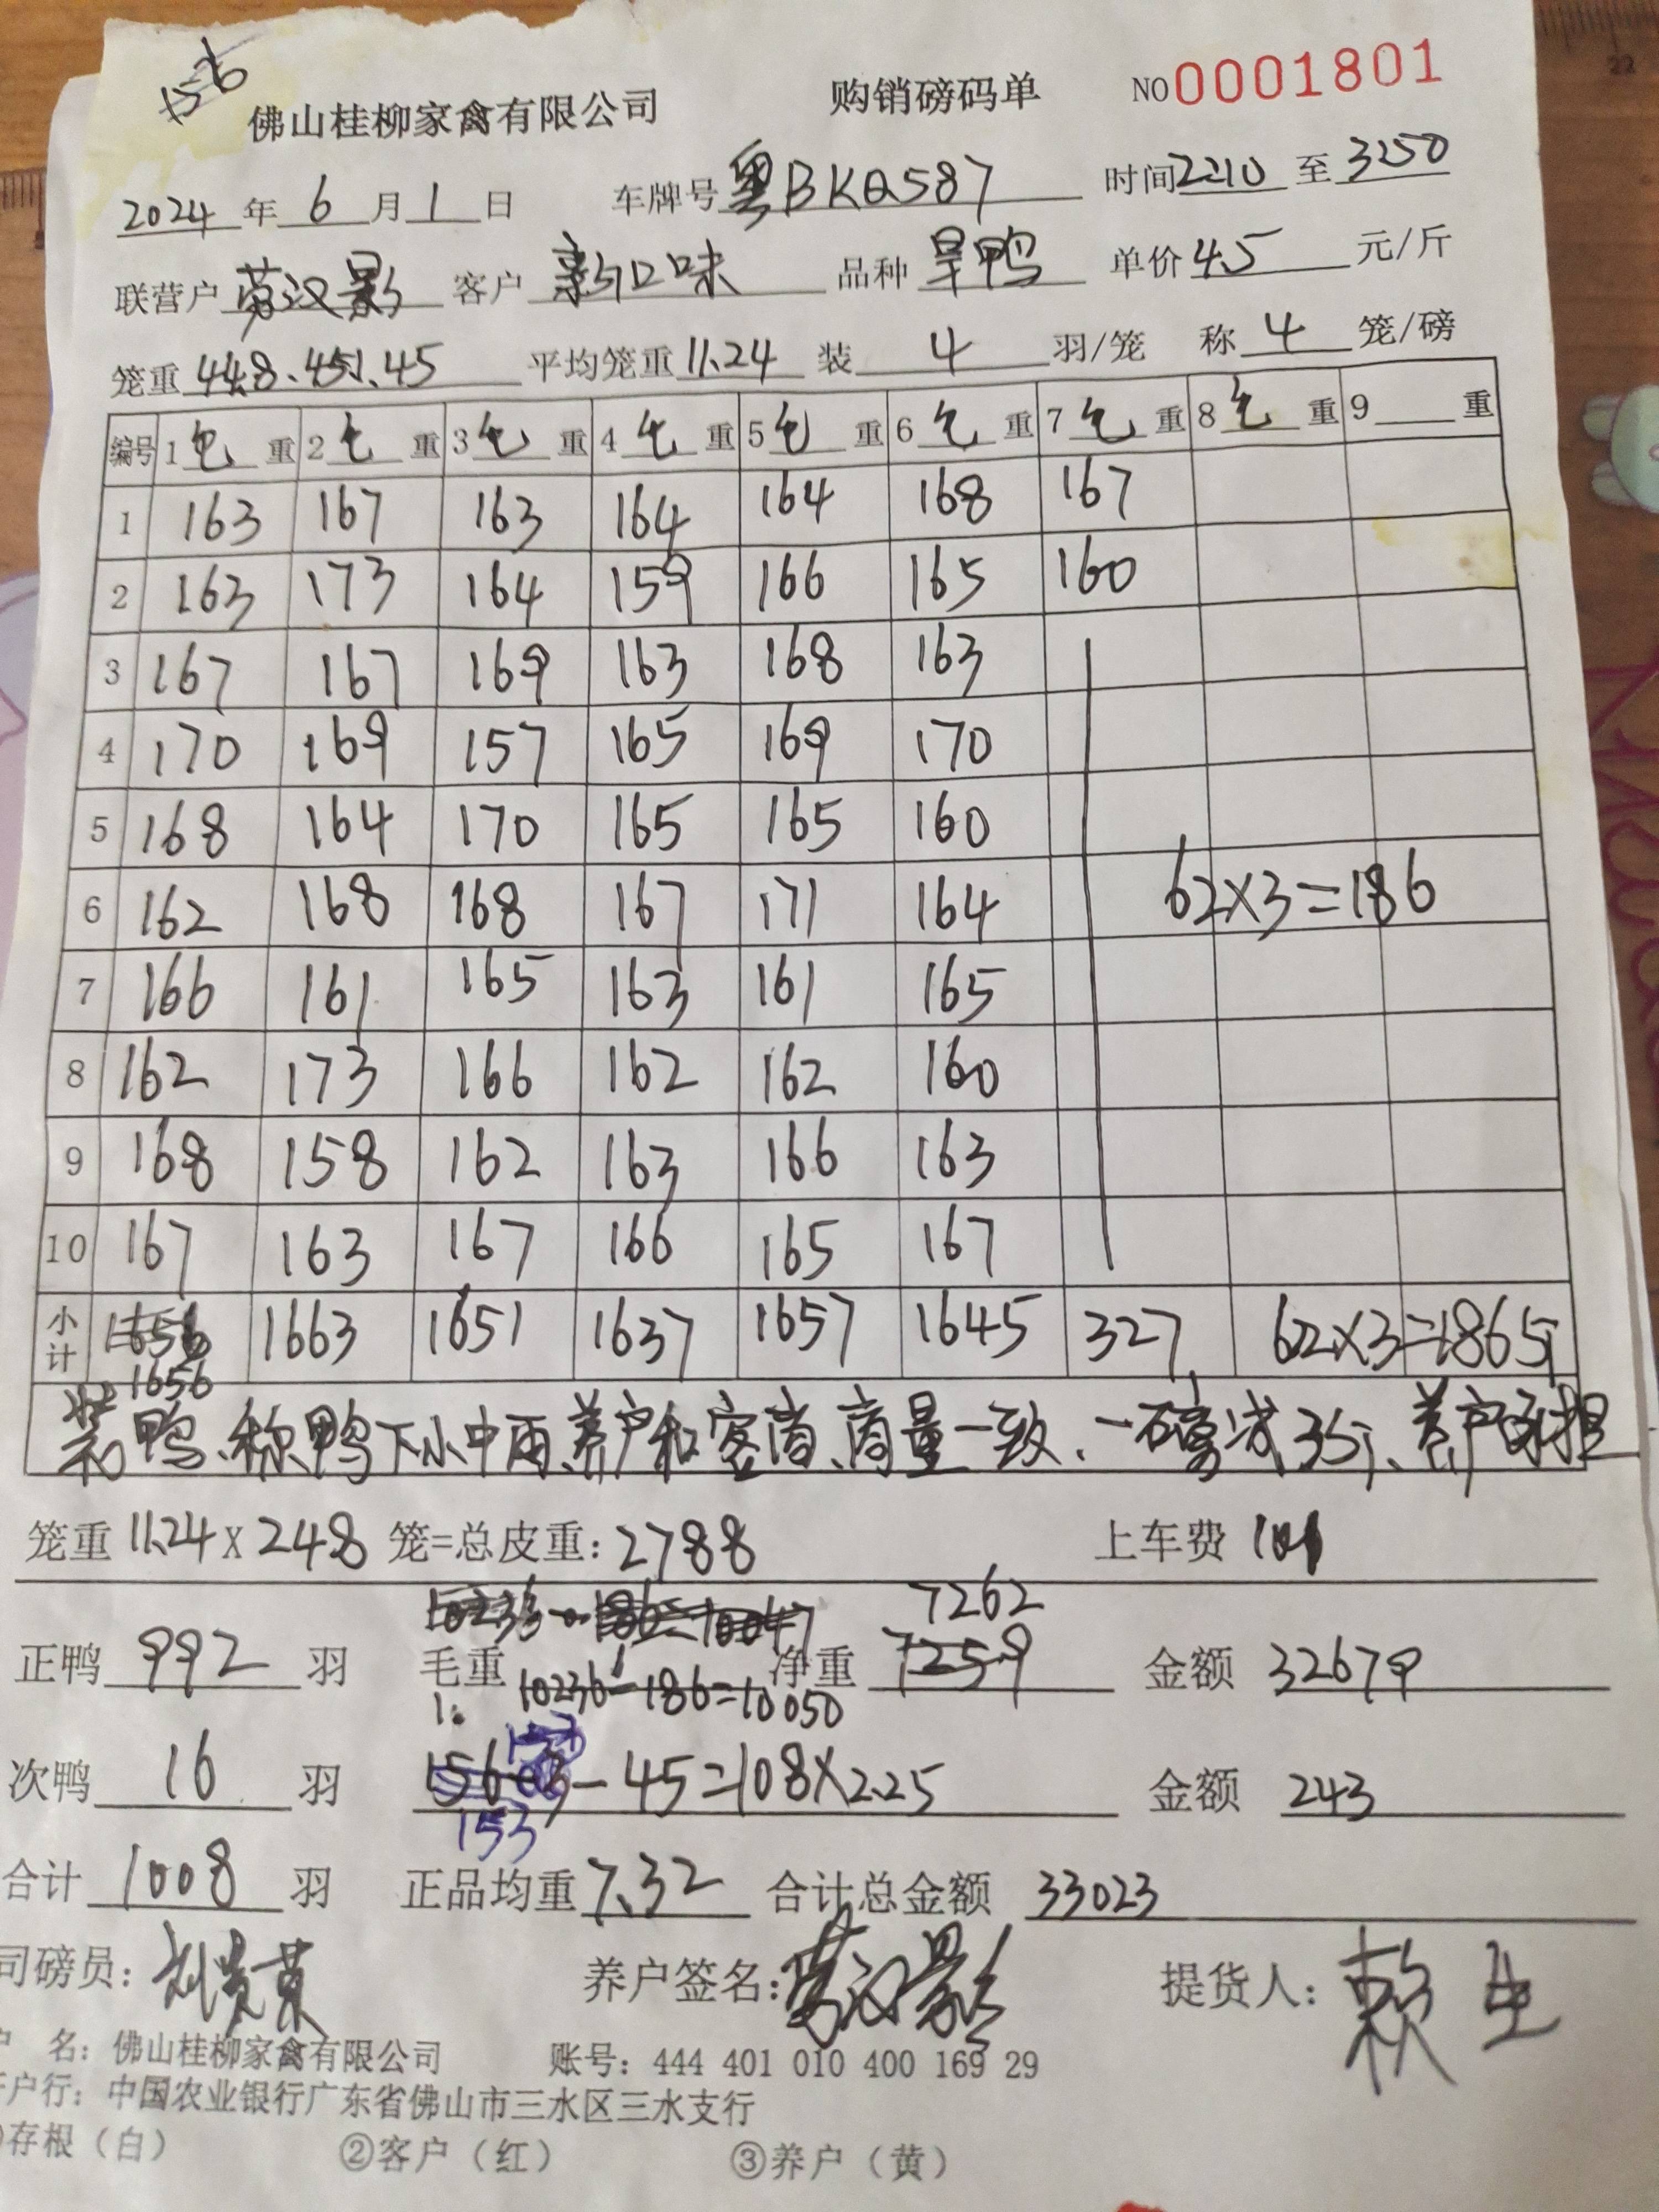 156
佛山桂柳家禽有限公司 购销磅码单 NO 0001801
2024年6月1日 车牌号 粤BKQ587 时间2210至3250
联营户 劳汉影 客户 新口味 品种 旱鸭 单价4.5元/斤
笼重 44.8、45.1、45 平均笼重11.24 装4羽/笼 称4笼/磅
编号 1毛重 2毛重 3毛重 4毛重 5毛重 6毛重 7毛重 8毛重 9 重
1 163 167 163 164 164 168 167
2 163 173 164 159 166 165 160
3 167 167 169 163 168 163
4 170 169 157 165 169 170
5 168 164 170 165 165 160
6 162 168 168 167 171 164 62×3=186
7 166 161 165 163 161 165
8 162 173 166 162 162 160
9 168 158 162 163 166 163
10 167 163 167 166 165 167
小计 1656 1663 1651 1637 1657 1645 327 62×3=186斤
1656
装鸭、称鸭下小中雨、养户和客商、商量一致、一磅减3斤、养户承担
笼重11.24×248笼=总皮重:2788 上车费 101
10233-186=10047 7262
正鸭992羽 毛重 净重7259 金额 32679
1: 10236-186=10050
次鸭16羽 -45=108×2.25 金额 243
153
合计1008羽 正品均重7.32 合计总金额 33023
司磅员: 养户签名:劳汉影 提货人:赖生
户 名:佛山桂柳家禽有限公司 账号:444 401 010 400 169 29
户行:中国农业银行广东省佛山市三水区三水支行
存根(白) ②客户(红) ③养户(黄)